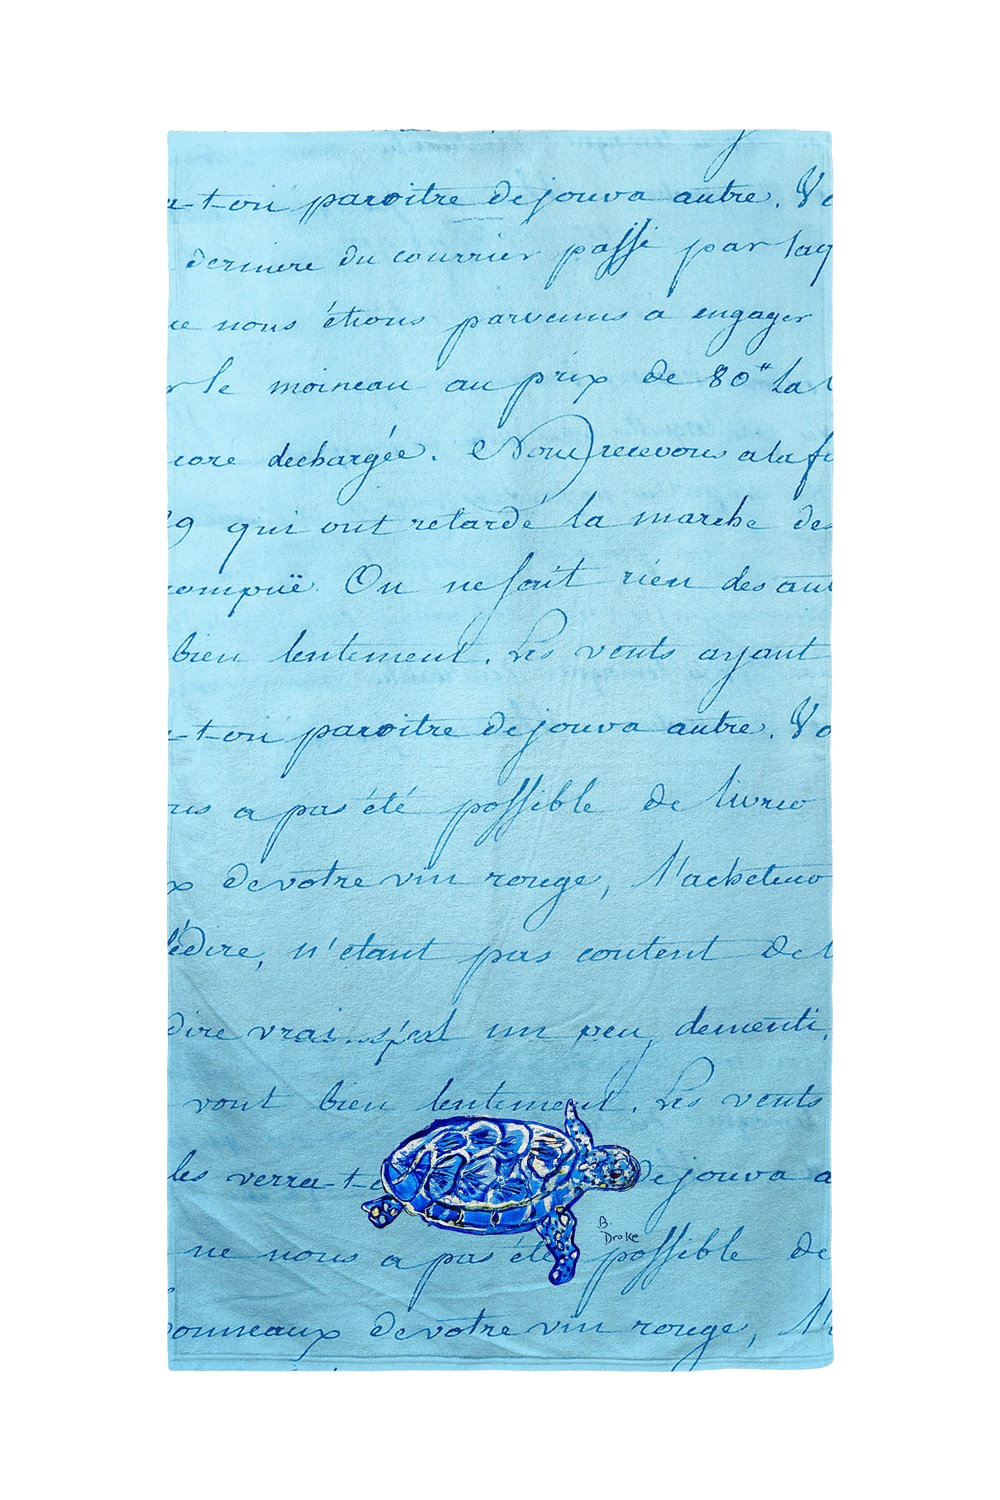 a-t-on paroitre dejouva autre. Vo
derniere du courrier passé par laq
ue nous étions parvenus a engager
r le moineau au prix de 80" La
core dechargée. Nous recevons a la f
29 qui ont retardé la marche des
rompuë. On ne fait rien des au
bien lentement. Les vents ayant
a-t-on paroitre dejouva autre. Vo
us a pas été possible de livrer
x de votre vin rouge, l'acheteur
dédire, n'etant pas content de l
dire vrai s'est un peu dementi,
vont bien lentement. Les vents
les verra-t-o dejouva a
ne nous a pas été possible de
B.
Drake
onneaux de votre vin rouge, l'